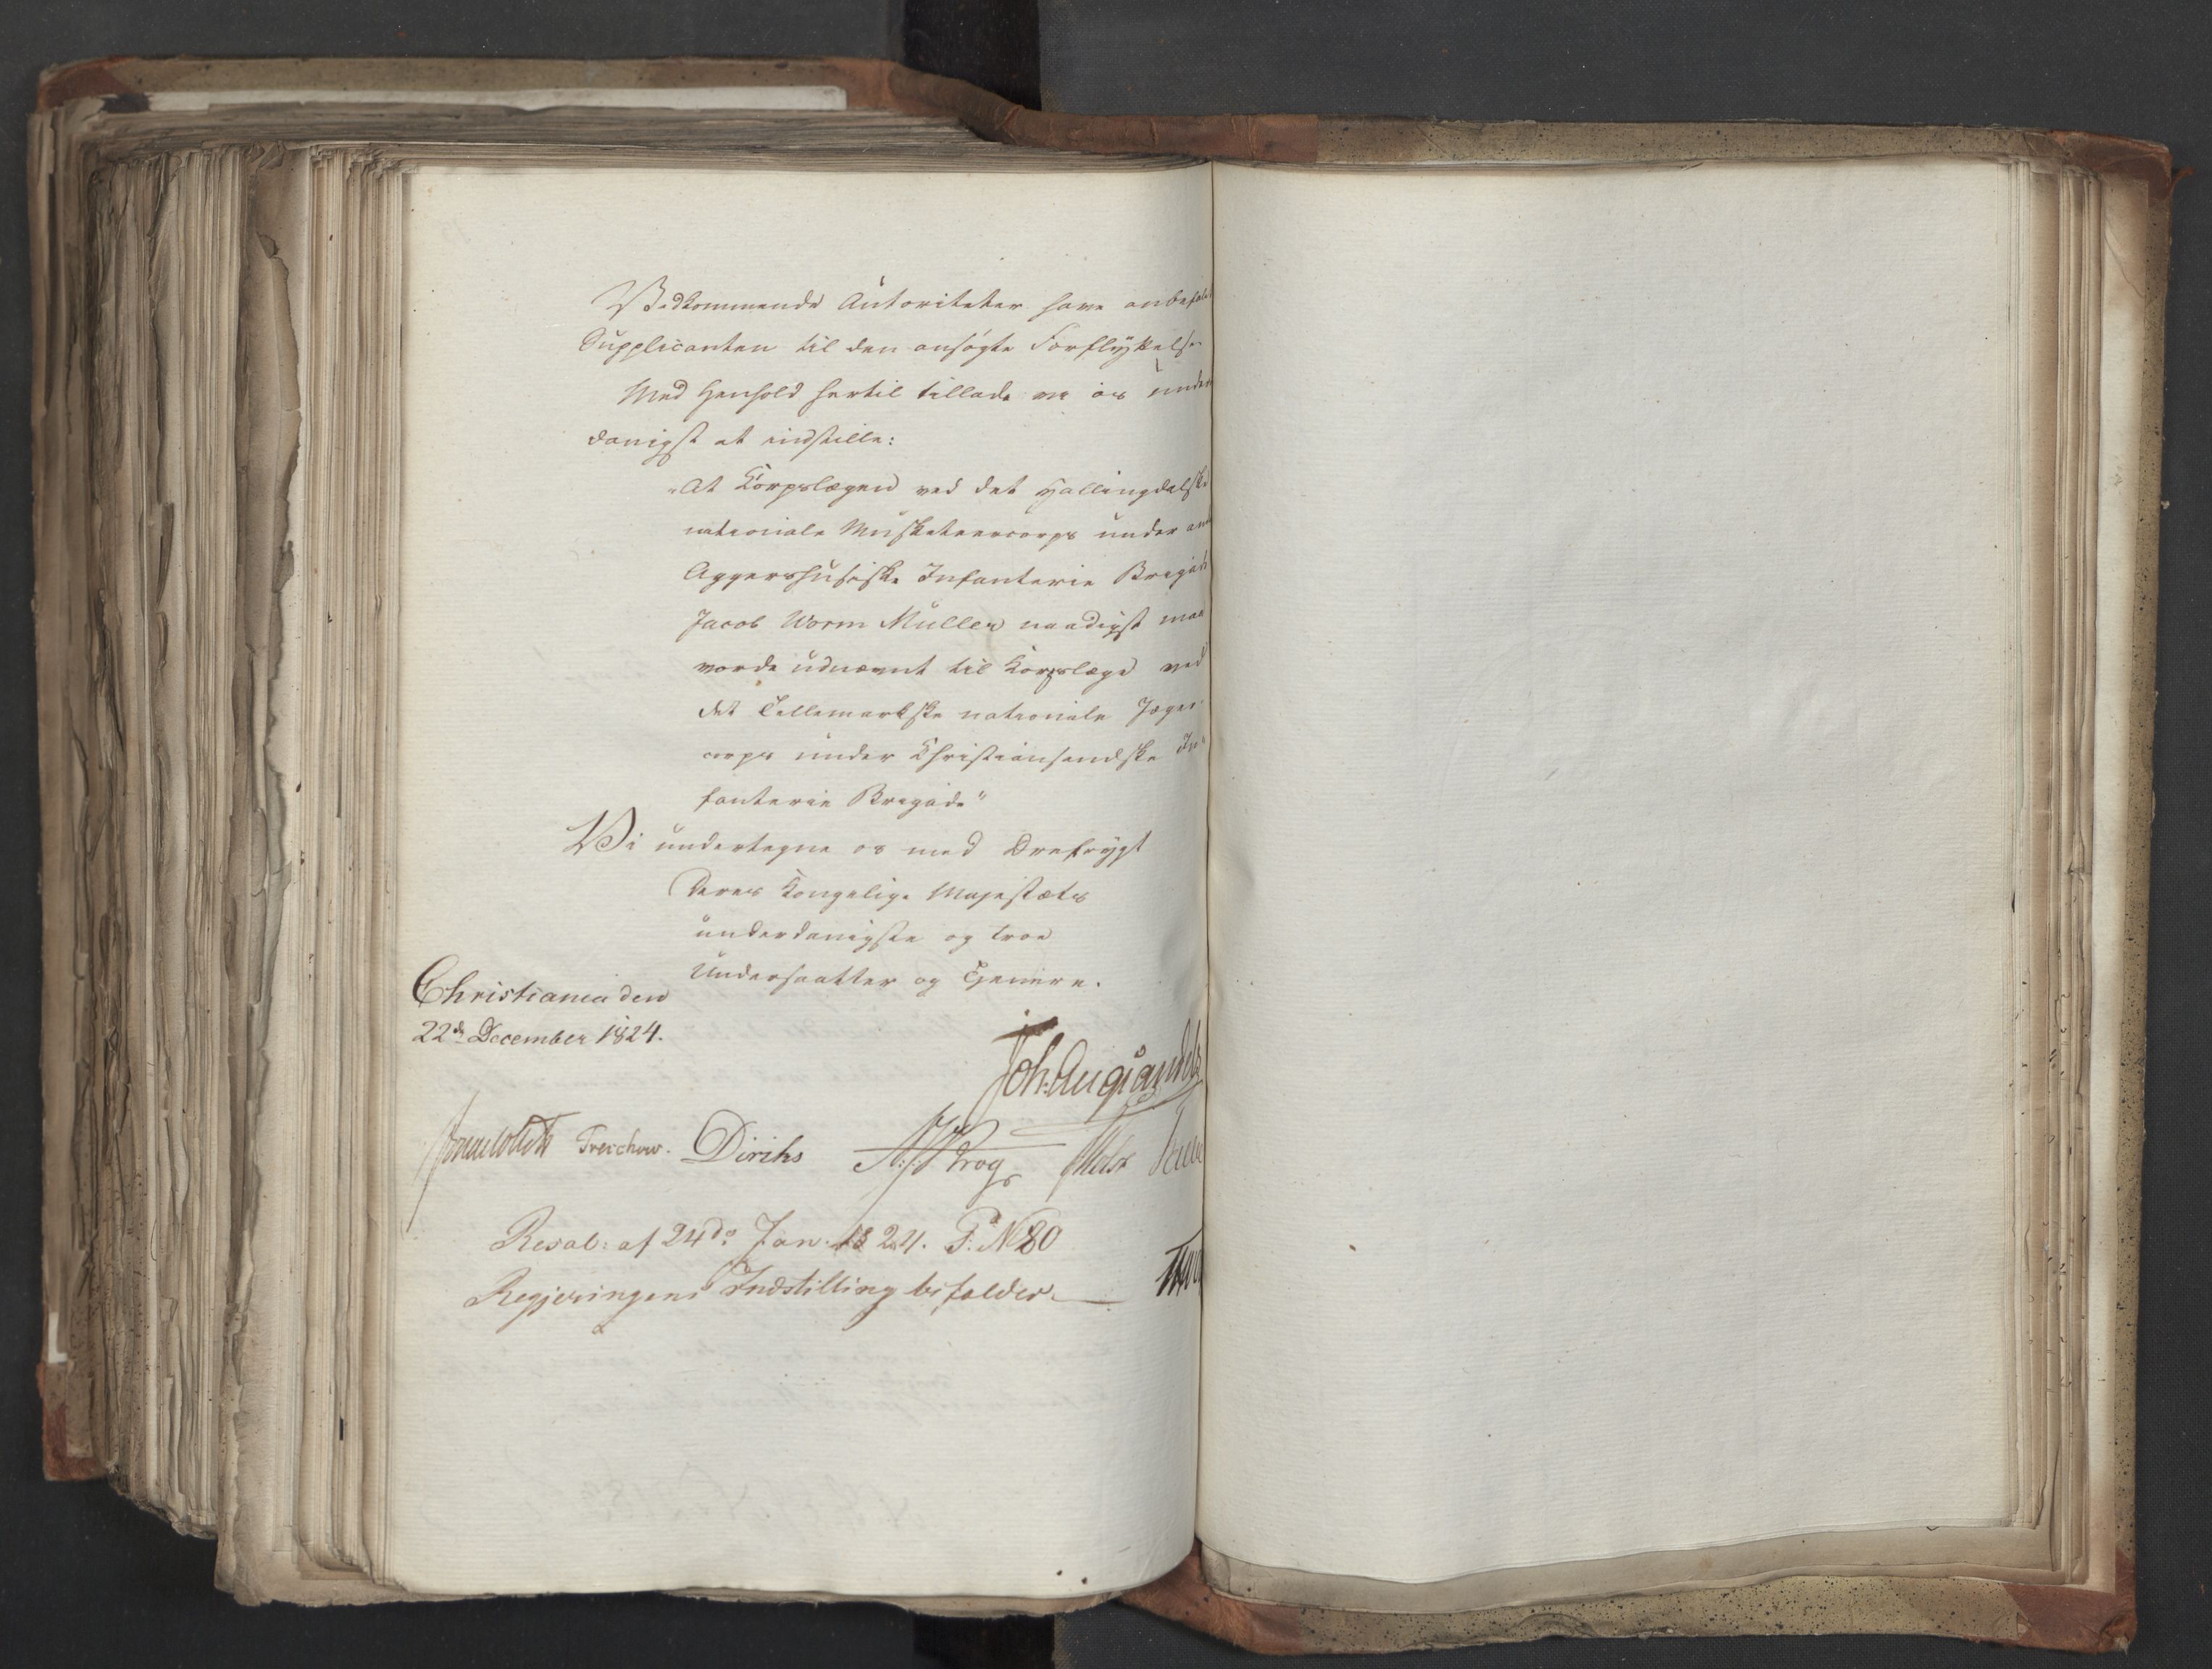 Vedkommende Autoriteter have anbefalet
Supplicanten til den ansøgte Forflyttelse.
Med Henhold hertil tillade vi os under
danigst at indstille:
"At Korpslægen ved det Hallingdalske
nationale Musketeercorps under
Aggershusiske Infanterie Brigade
Jacob Worm Müller naadigst maa
vorde udnævnt til Korpslæge ved
det Tellemarkske nationale Jæger-
corps under Christiansandske In-
fanterie Brigade"
Vi undertegne os med Ærefrygt
Deres Kongelige Majestæts
underdanigste og troe
Undersaatter og Tjenere.
Christiania den
22de December 1824.
Joh: Aug: Sandels
Sommerfeldt Treschow. Diriks Krog
Resol: af 24de Jan. 1824. P: N 80
Regjeringens Indstilling bifaldes.